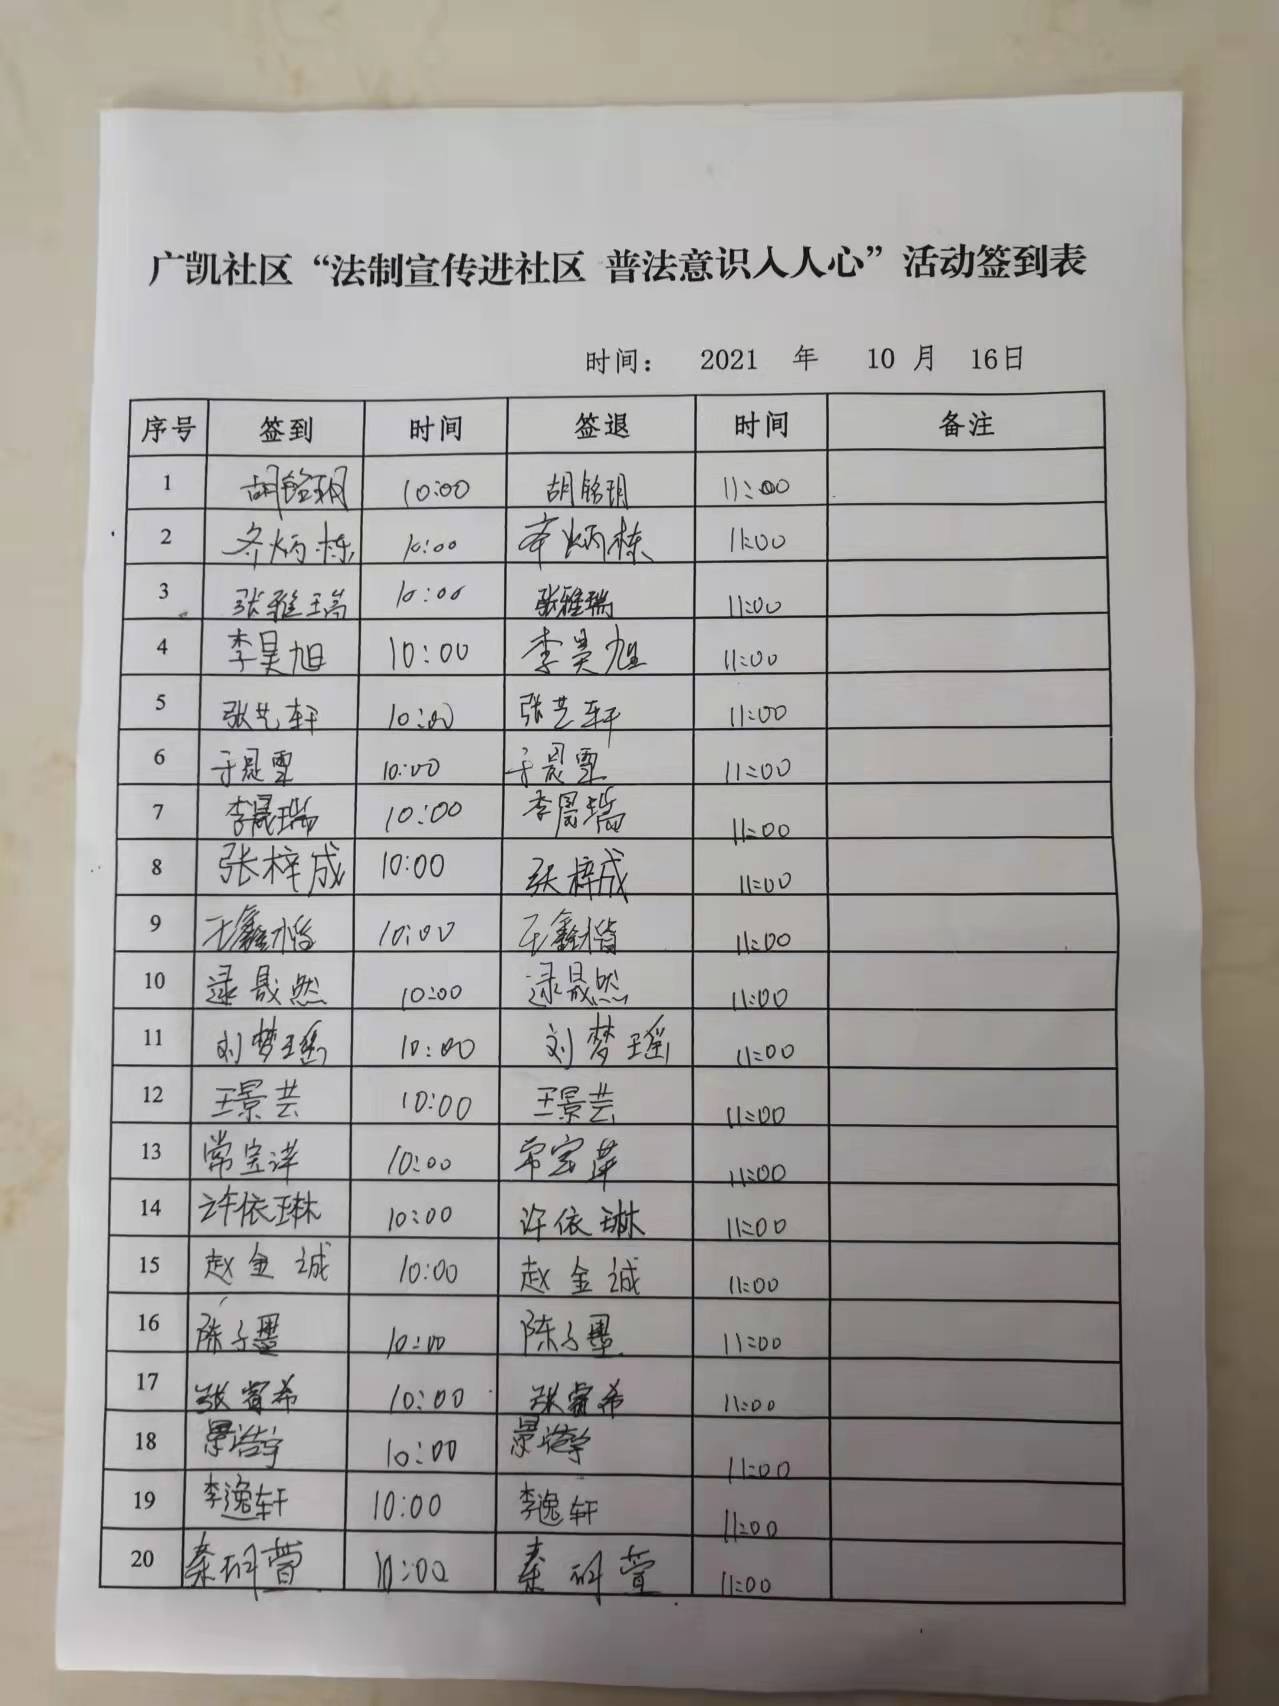 广凯社区“法制宣传进社区 普法意识入人心”活动签到表
时间： 2021 年 10 月 16日
序号 签到 时间 签退 时间 备注
1 胡铭玥 10:00 胡铭玥 11:00
2 炳栋 10:00 炳栋 11:00
3 张雅瑞 10:00 张雅瑞 11:00
4 李昊旭 10:00 李昊旭 11:00
5 张艺轩 10:00 张艺轩 11:00
6 于晨 10:00 于晨 11:00
7 李晟瑞 10:00 李晟瑞 11:00
8 张梓成 10:00 张梓成 11:00
9 王鑫楷 10:00 王鑫楷 11:00
10 逯晟然 10:00 逯晟然 11:00
11 刘梦瑶 10:00 刘梦瑶 11:00
12 王景芸 10:00 王景芸 11:00
13 常宝 10:00 常宝 11:00
14 许依琳 10:00 许依琳 11:00
15 赵金诚 10:00 赵金诚 11:00
16 陈子墨 10:00 陈子墨 11:00
17 张睿希 10:00 张睿希 11:00
18 景浩宇 10:00 景浩宇 11:00
19 李逸轩 10:00 李逸轩 11:00
20 秦萱 10:00 秦萱 11:00